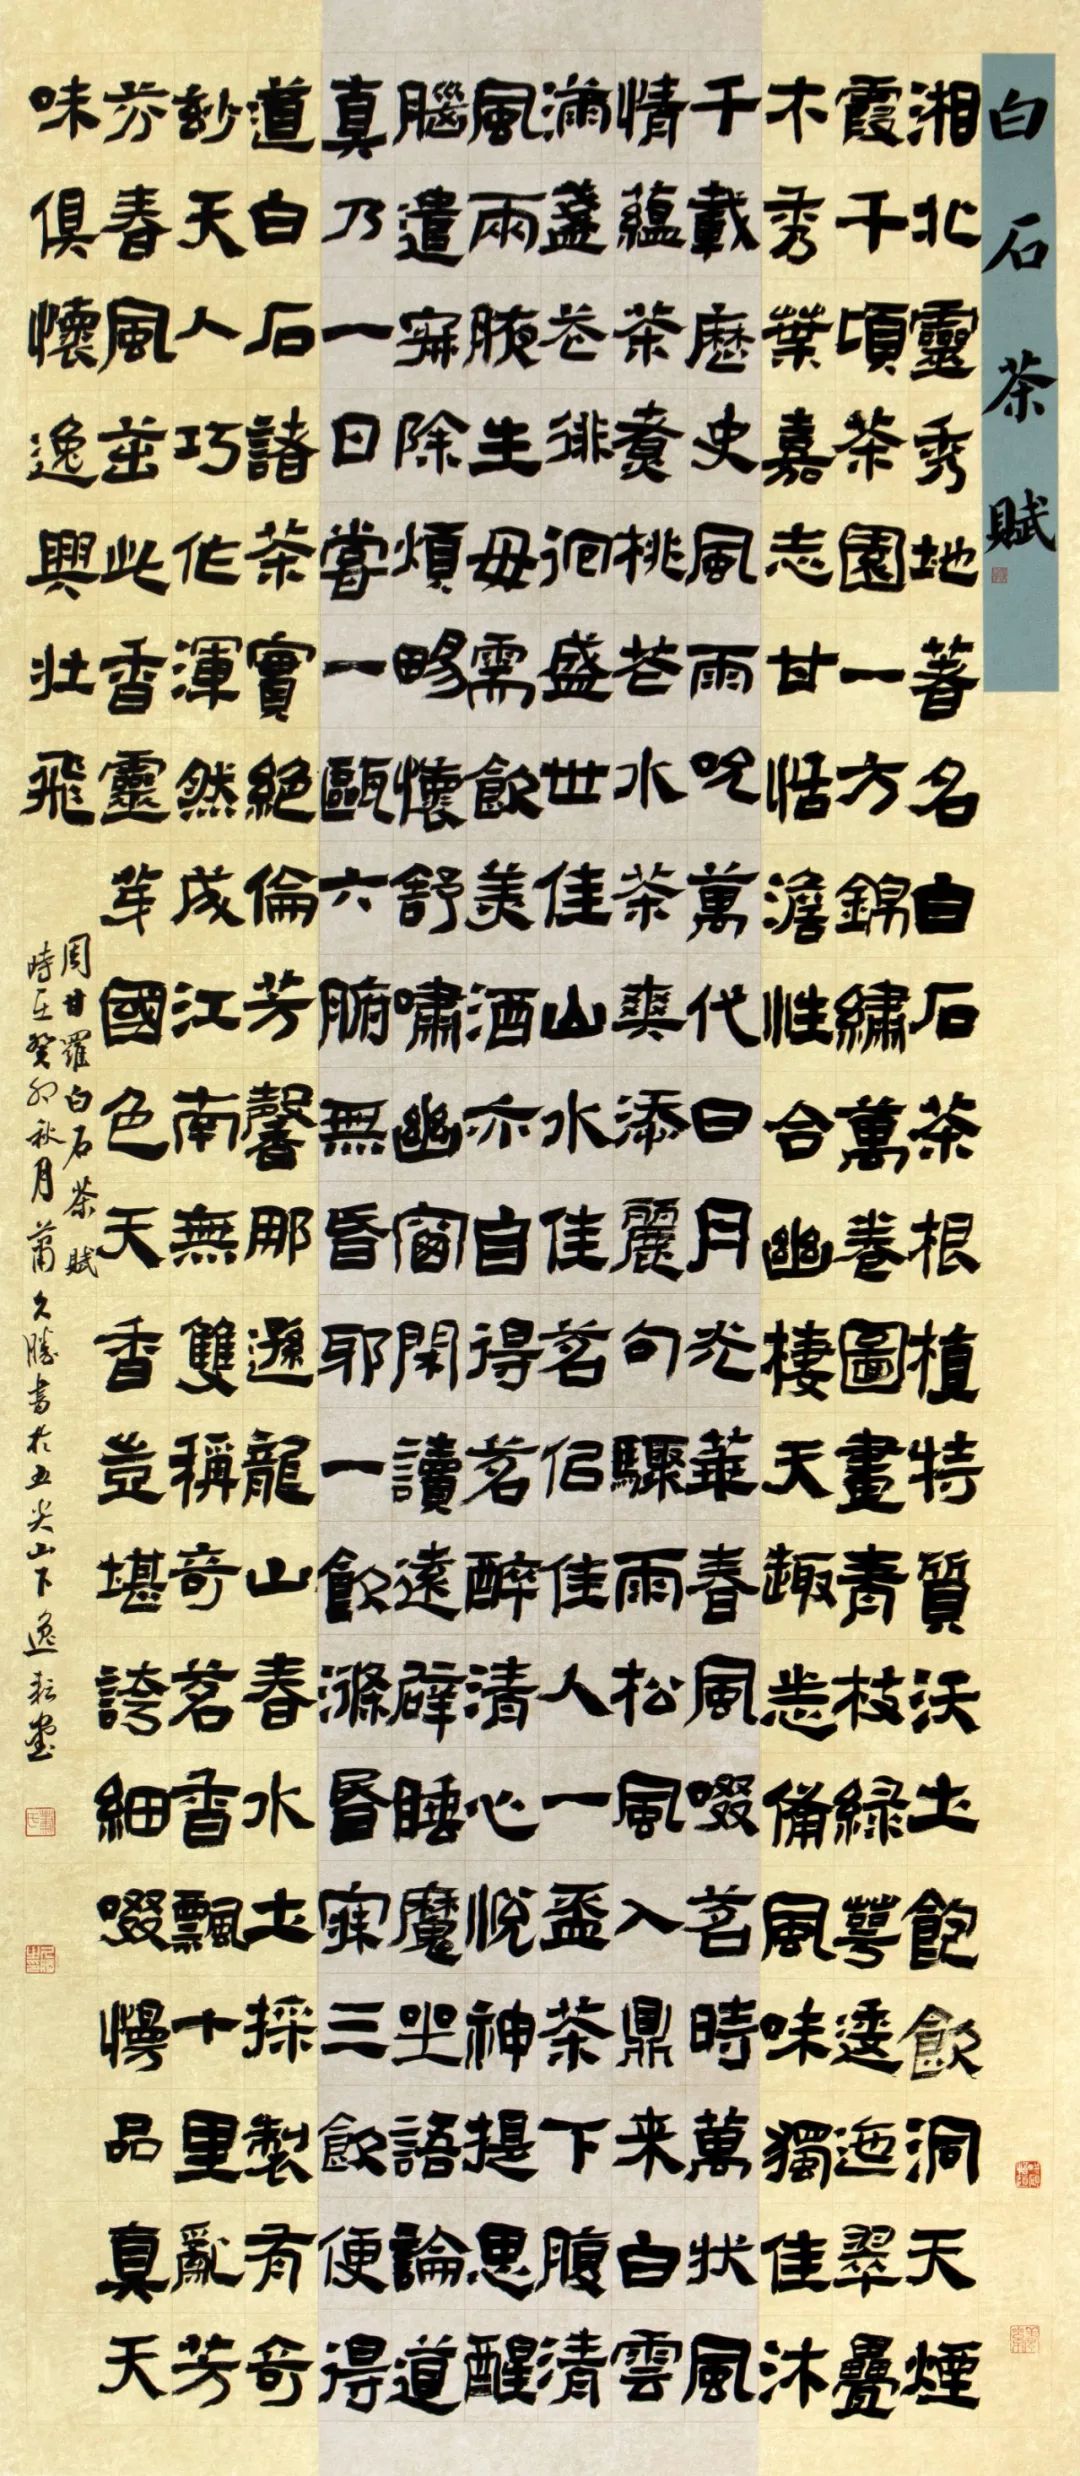 白石茶賦
湘北靈秀地著名白石茶根植特質沃土飽飲洞天煙
霞千頃茶園一方錦繡萬卷圖畫青枝綠萼逶迤翠疊
木秀葉嘉志甘恬澹性合幽棲天趣悉備風味獨佳沐
千載歷史風雨吮萬代日月光華春風啜茗時萬狀風
情蘊茶煮桃花水茶爽添麗句驟雨松風入鼎来白雲
滿盞花徘徊盛世佳山水佳茗侶佳人一盃茶下腹清
風兩腋生毋需飲美酒亦自得茗醉清心悅神提思醒
腦遣寐除煩暢懷舒嘯幽窗閑讀遠辟睡魔坐語論道
真乃一日嘗一甌六腑無昏邪一飲滌昏寐三飲便得
道白石諸茶實絕倫芳馨那遜龍山春水土採製有奇
妙天人巧作渾然成江南無雙稱奇茗香飄十里亂芳
芬春風茁此香靈芽國色天香豈堪誇細啜慢品真天
味俱懷逸興壯飛
周甘羅白石茶賦
時在癸卯秋月蕭久勝書於五尖山下逸耘堂